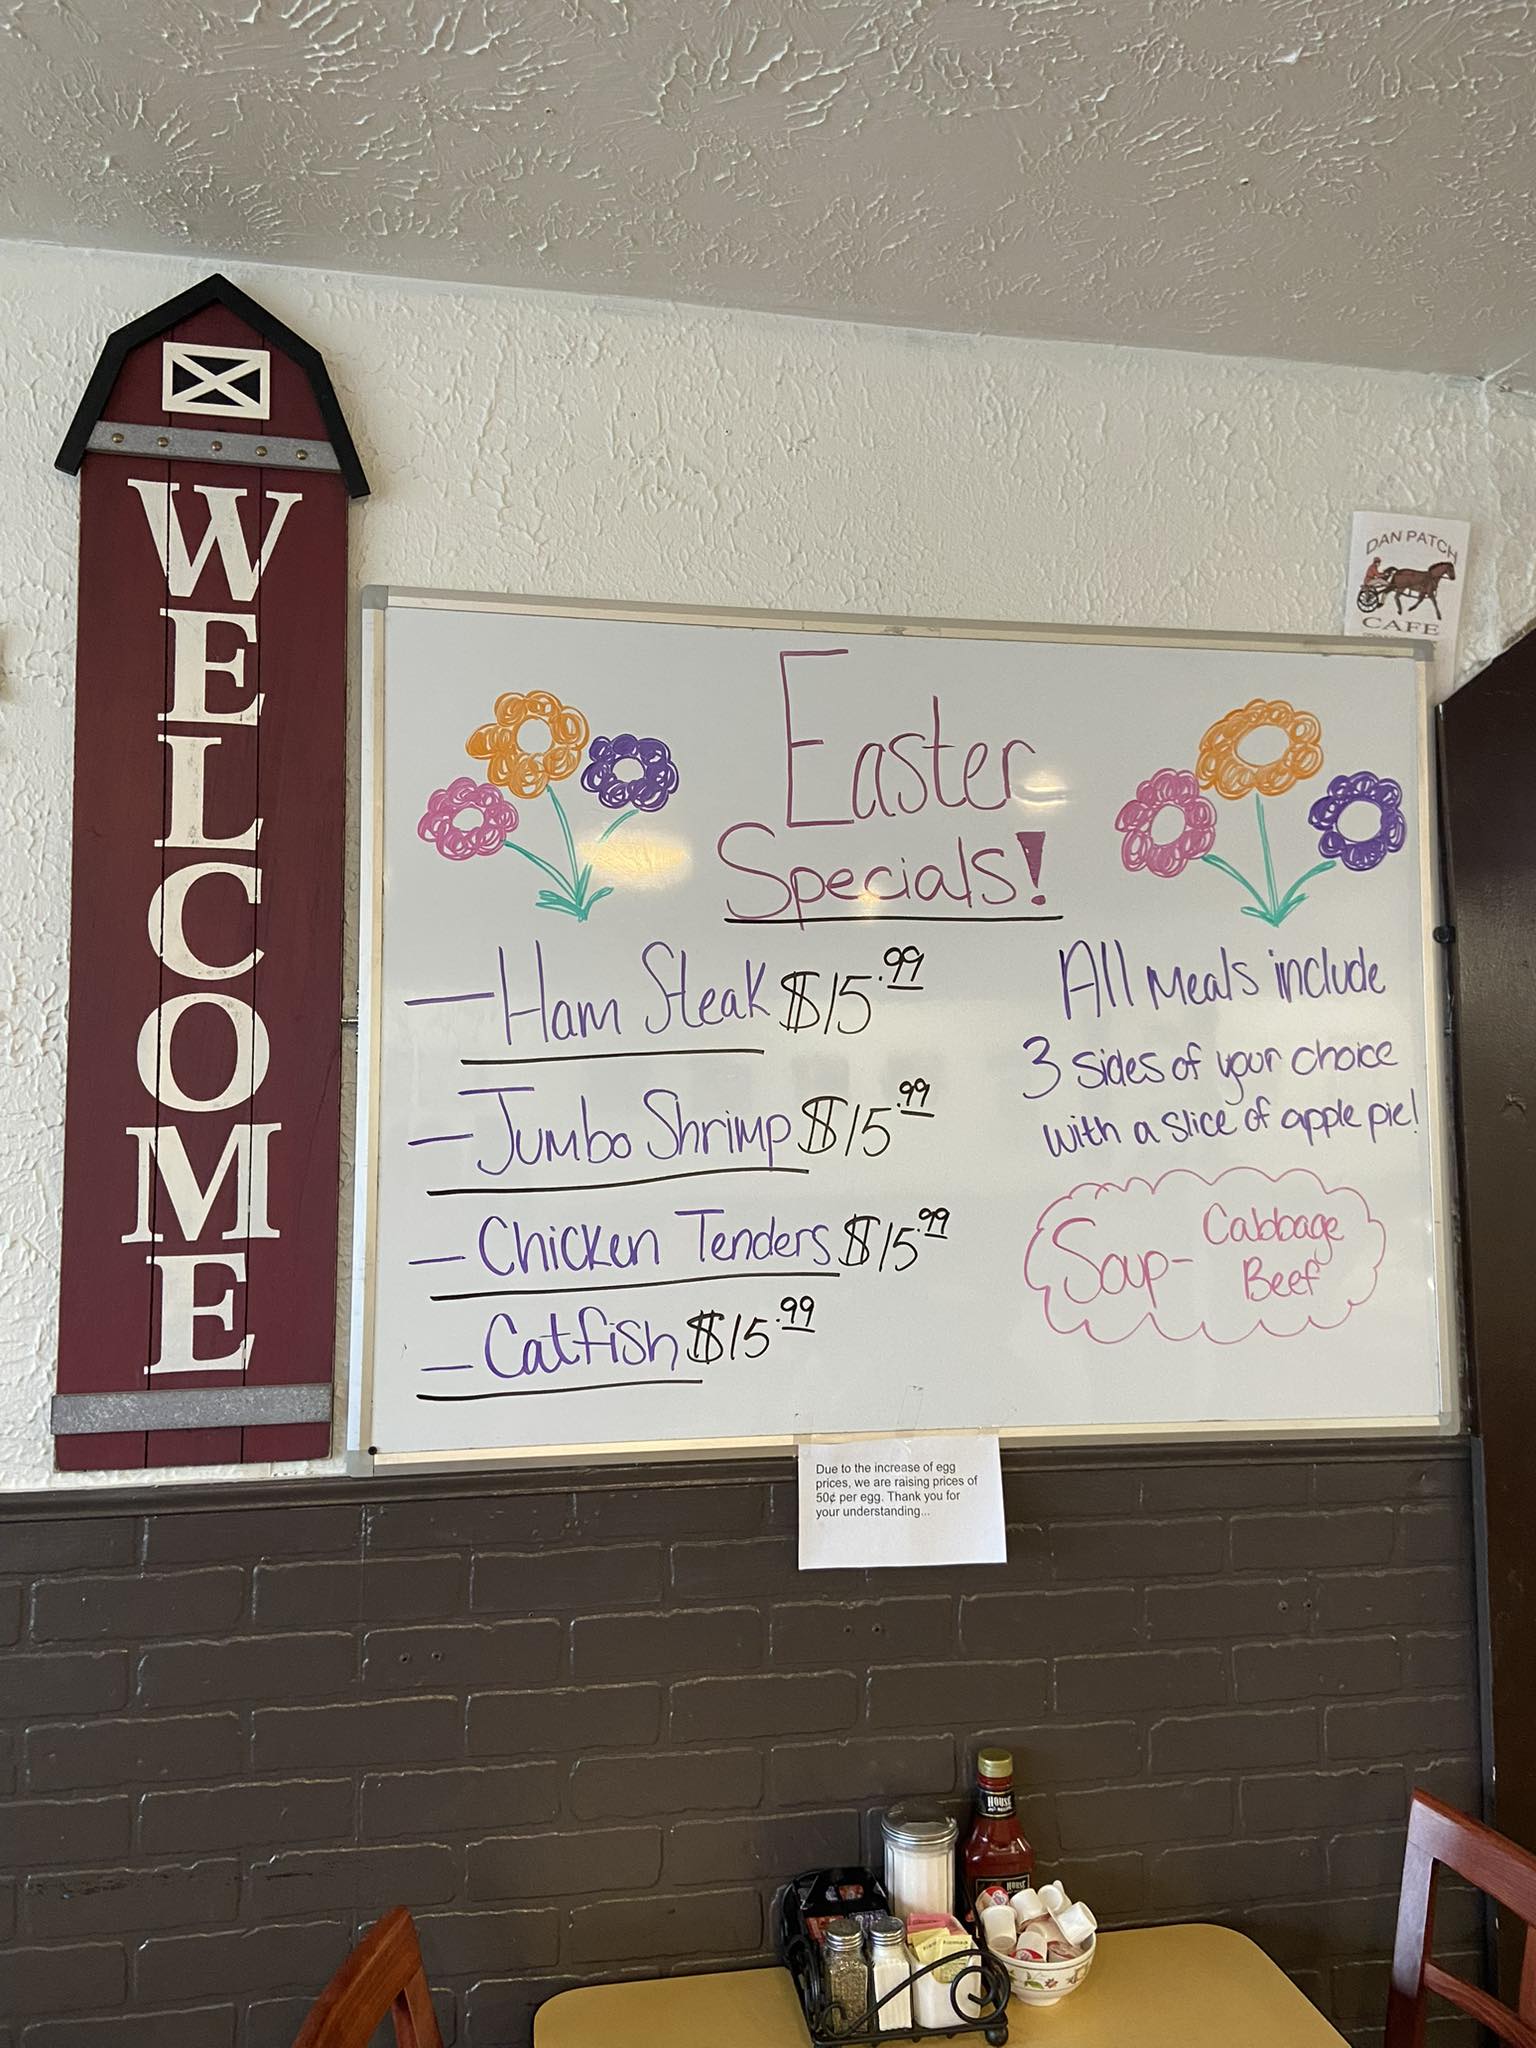 WELCOME
DAN PATCH
CAFE
Easter
Specials!
— Ham Steak $15.99
— Jumbo Shrimp $15.99
— Chicken Tenders $15.99
— Catfish $15.99
All Meals include
3 sides of your choice
with a slice of apple pie!
Soup- Cabbage
Beef
Due to the increase of egg
prices, we are raising prices of
50¢ per egg. Thank you for
your understanding...
HOUSE
HOUSE